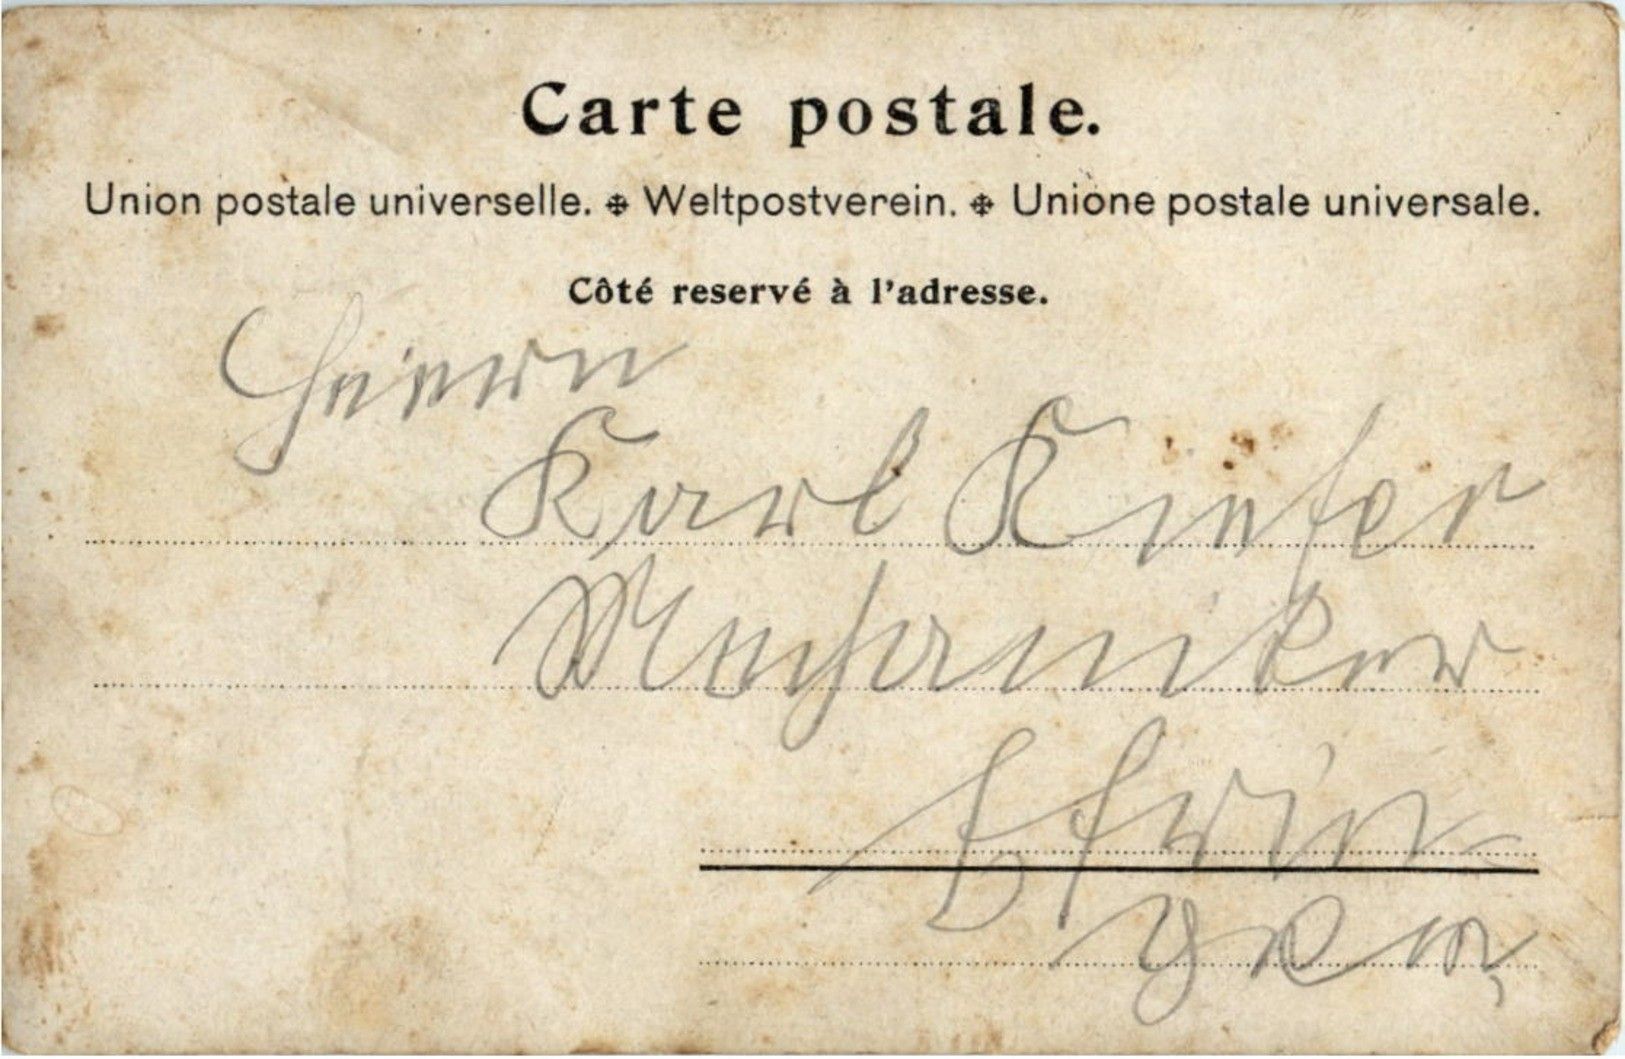 Carte postale.
Union postale universelle. ✙ Weltpostverein. ✙ Unione postale universale.
Côté reservé à l'adresse.
Herrn
Karl Kiefer
Mechaniker
Efrin-
gen